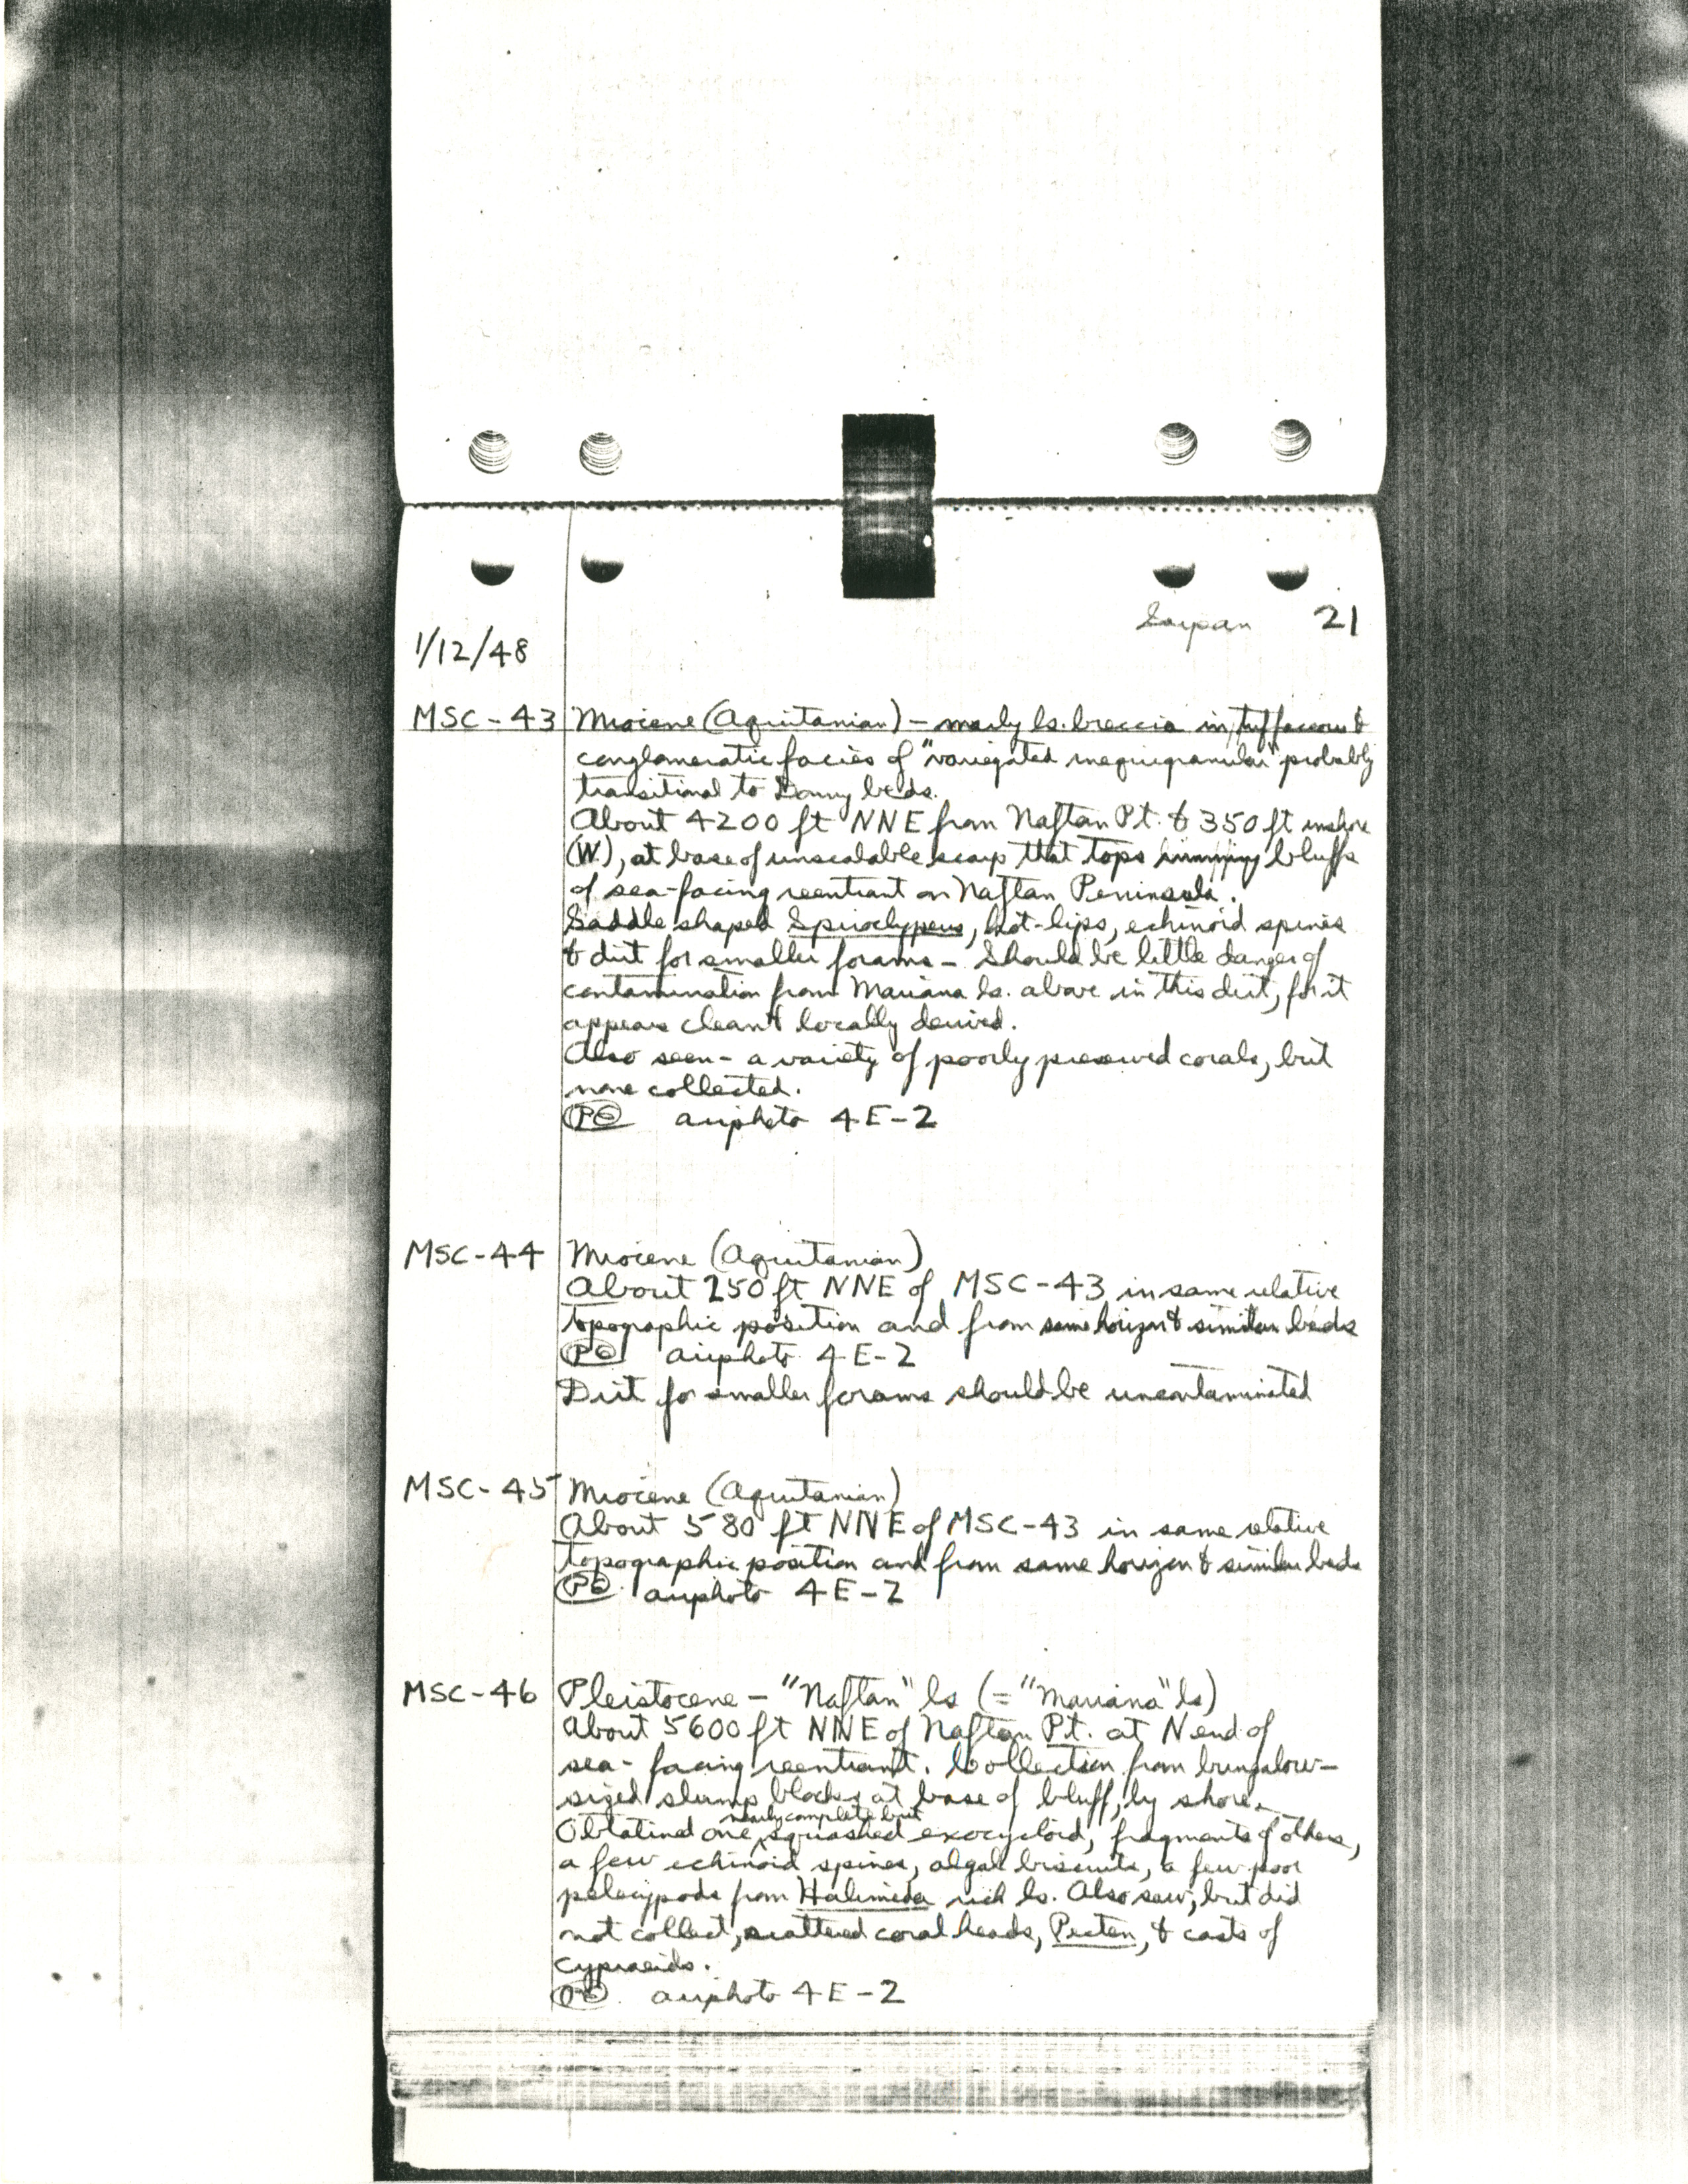 Saipan 21
1/12/48
MSC-43 Miocene (Aquitanian) - marly ls. breccia in tuffaceous &
conglomeratic facies of "variegated inequigranular" probably
transitional to Donny beds.
About 4200 ft NNE from Naftan Pt. & 350 ft inshore
(W), at base of unscalable scarp that tops bluffs
of sea-facing reentrant on Naftan Peninsula.
Saddle shaped Spiroclypeus, hot-lips, echinoid spines
& dirt for smaller forams - Should be little danger of
contamination from Mariana ls. above in this dirt, for it
appears clean & locally derived.
Also seen - a variety of poorly preserved corals, but
none collected.
airphoto 4E-2
MSC-44 Miocene (Aquitanian)
About 250 ft NNE of MSC-43 in same relative
topographic position and from same horizon & similar beds
airphoto 4E-2
Dirt for smaller forams should be uncontaminated
MSC-45 Miocene (Aquitanian)
About 580 ft NNE of MSC-43 in same relative
topographic position and from same horizon & similar beds
airphoto 4E-2
MSC-46 Pleistocene - "Naftan" ls (= "Mariana" ls)
About 5600 ft NNE of Naftan Pt. at N end of
sea-facing reentrant. Collection from bungalow-
sized slump blocks at base of bluff, by shore.
nearly complete but
Obtatined one, squashed exocycloid, fragments of others,
a few echinoid spines, algal biscuits, a few poor
pelecypods from Halimeda rich ls. Also saw, but did
not collect, scattered coral heads, Pecten, & casts of
cypraeids.
airphoto 4E-2